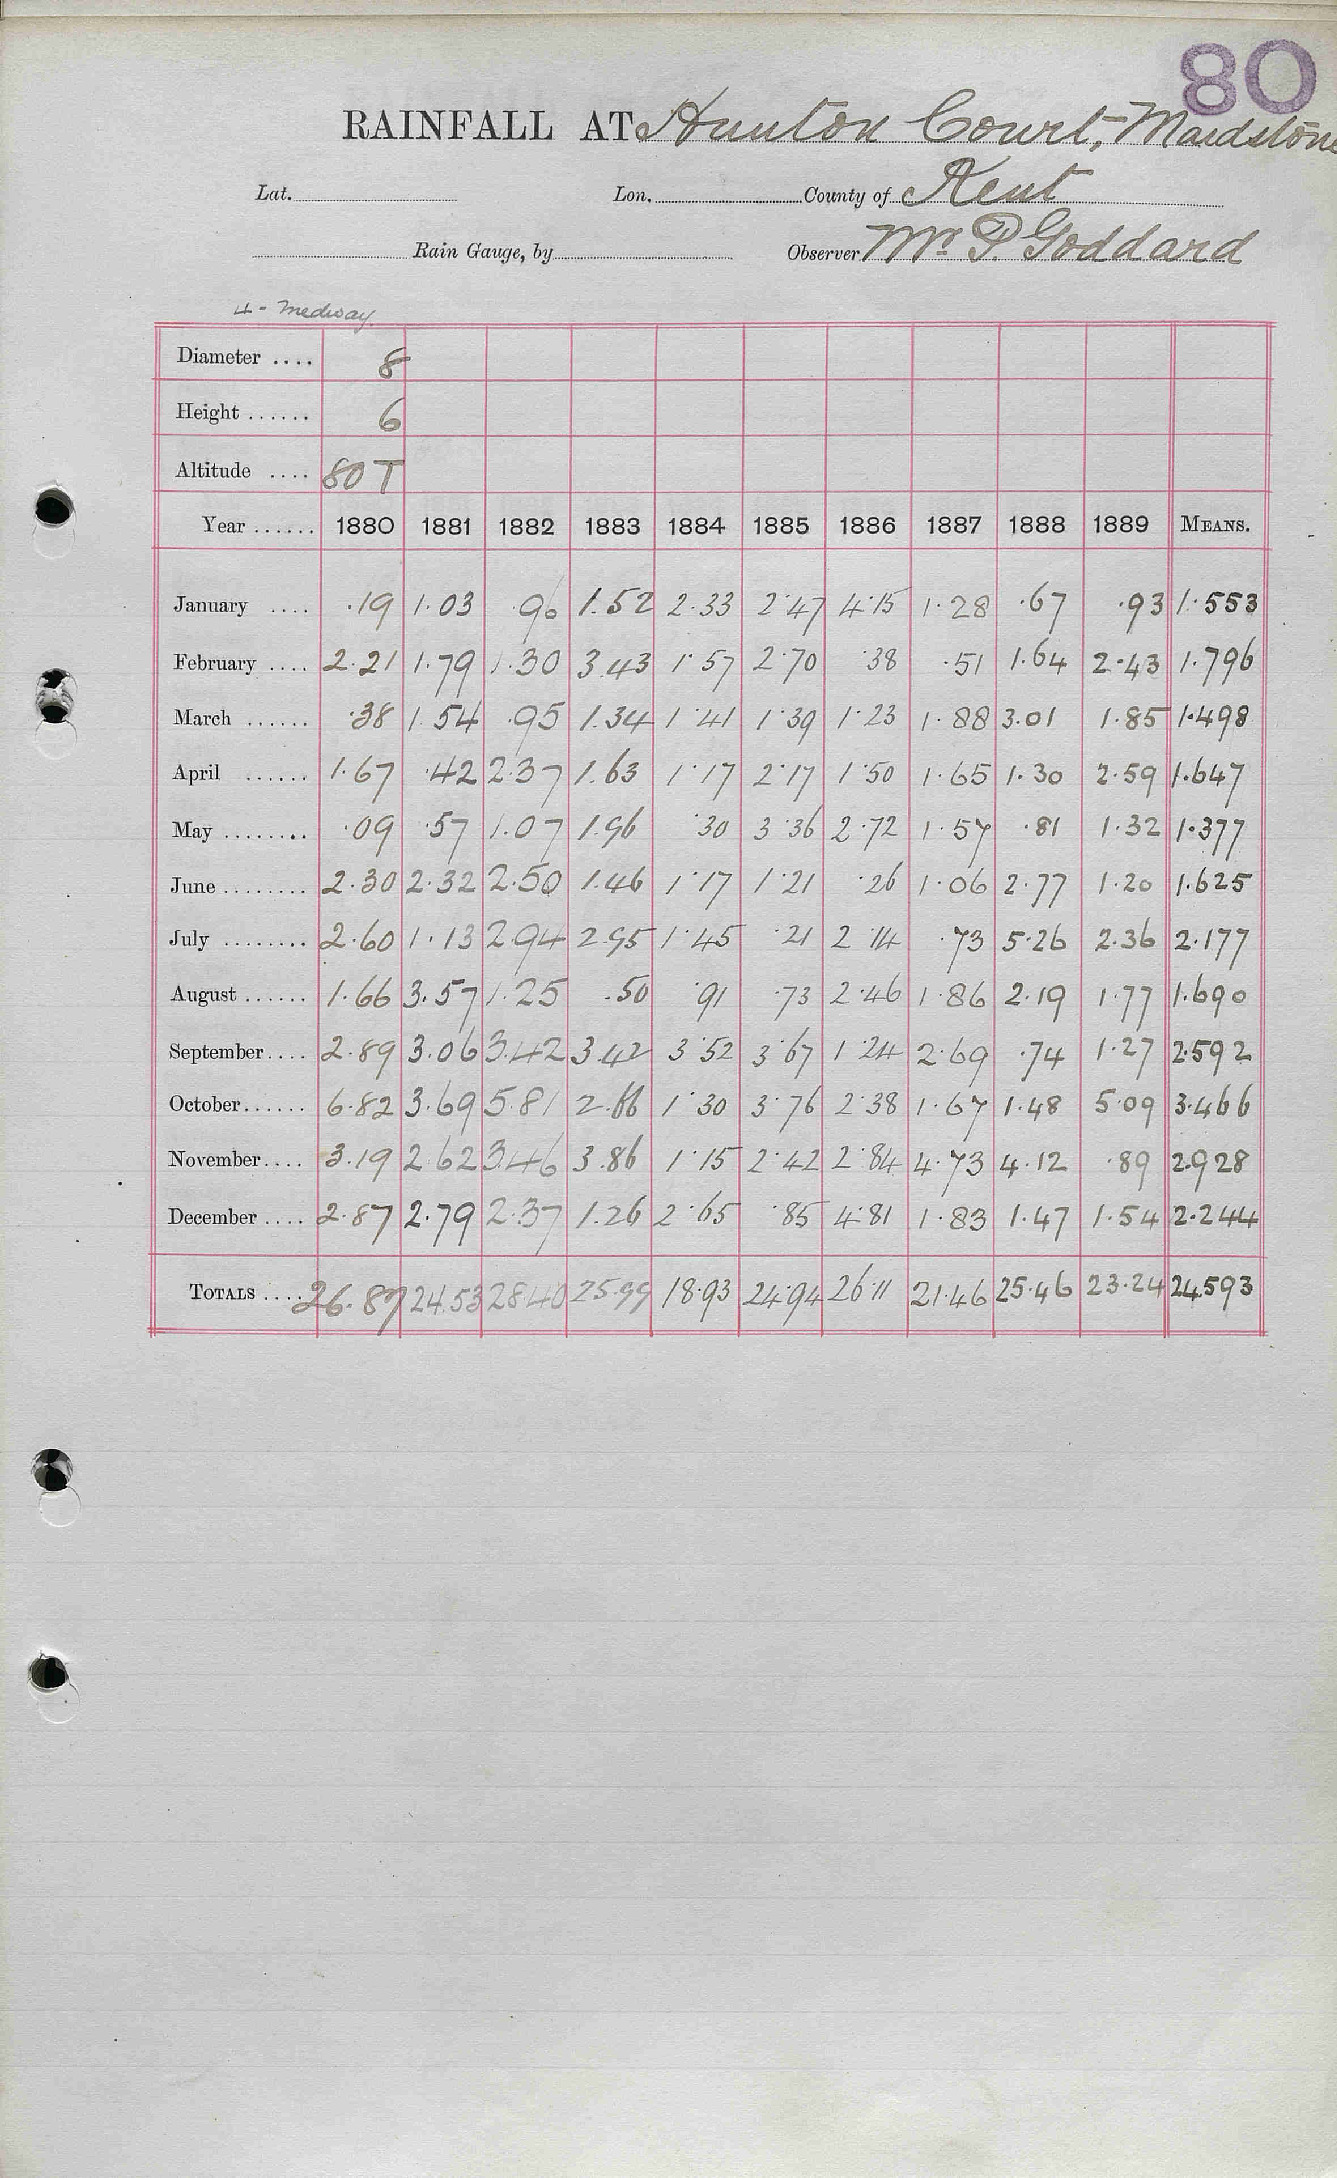 80
RAINFALL AT Hunton Court, Maidstone
Lat. Lon. County of Kent
Rain Gauge, by Observer Mr. P. Goddard
4 - Medway
Diameter .... 8
Height ...... 6
Altitude .... 80 T
Year ...... 1880 1881 1882 1883 1884 1885 1886 1887 1888 1889 MEANS.
January .... .19 1.03 .96 1.52 2.33 2.47 4.15 1.28 .67 .93 1.553
February .... 2.21 1.79 1.30 3.43 1.57 2.70 .38 .51 1.64 2.43 1.796
March ...... .38 1.54 .95 1.34 1.41 1.39 1.23 1.88 3.01 1.85 1.498
April ...... 1.67 .42 2.37 1.63 1.17 2.17 1.50 1.65 1.30 2.59 1.647
May ........ .09 .57 1.07 1.96 .30 3.36 2.72 1.57 .81 1.32 1.377
June ........ 2.30 2.32 2.50 1.46 1.17 1.21 .26 1.06 2.77 1.20 1.625
July ........ 2.60 1.13 2.94 2.95 1.45 .21 2.14 .73 5.26 2.36 2.177
August ...... 1.66 3.57 1.25 .50 .91 .73 2.46 1.86 2.19 1.77 1.690
September .... 2.89 3.06 3.42 3.42 3.52 3.67 1.24 2.69 .74 1.27 2.592
October ...... 6.82 3.69 5.81 2.66 1.30 3.76 2.38 1.67 1.48 5.09 3.466
November .... 3.19 2.62 3.46 3.86 1.15 2.42 2.84 4.73 4.12 .89 2.928
December .... 2.87 2.79 2.37 1.26 2.65 .85 4.81 1.83 1.47 1.54 2.244
TOTALS .... 26.87 24.53 28.40 25.99 18.93 24.94 26.11 21.46 25.46 23.24 24.593